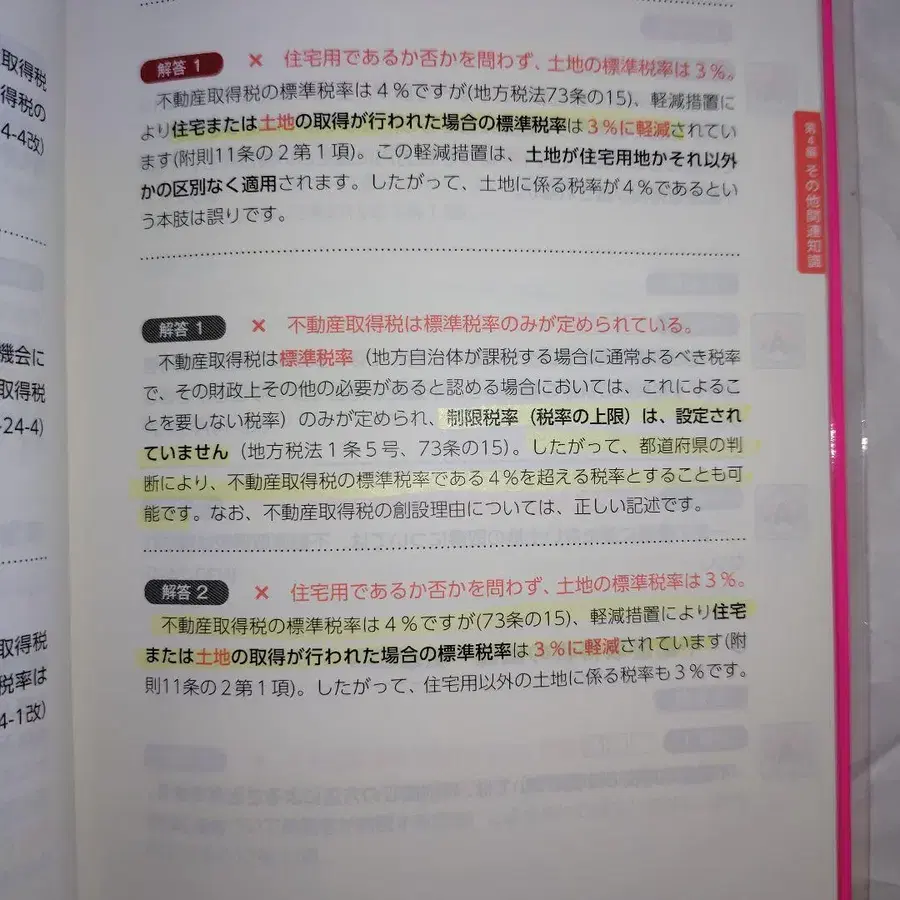 取得税
得税の
4-4改)
機会に
取得税
-24-4)
取得税
税率は
4-1改)
解答1 × 住宅用であるか否かを問わず、土地の標準税率は3%。
不動産取得税の標準税率は4%ですが(地方税法73条の15)、軽減措置に
より住宅または土地の取得が行われた場合の標準税率は3%に軽減されてい
ます(附則11条の2第1項)。この軽減措置は、土地が住宅用地かそれ以外
かの区別なく適用されます。したがって、土地に係る税率が4%であるとい
う本肢は誤りです。
解答1 × 不動産取得税は標準税率のみが定められている。
不動産取得税は標準税率(地方自治体が課税する場合に通常よるべき税率
で、その財政上その他の必要があると認める場合においては、これによるこ
とを要しない税率)のみが定められ、制限税率(税率の上限)は、設定され
ていません(地方税法1条5号、73条の15)。したがって、都道府県の判
断により、不動産取得税の標準税率である4%を超える税率とすることも可
能です。なお、不動産取得税の創設理由については、正しい記述です。
解答2 × 住宅用であるか否かを問わず、土地の標準税率は3%。
不動産取得税の標準税率は4%ですが(73条の15)、軽減措置により住宅
または土地の取得が行われた場合の標準税率は3%に軽減されています(附
則11条の2第1項)。したがって、住宅用以外の土地に係る税率も3%です。
第4編 その他関連知識